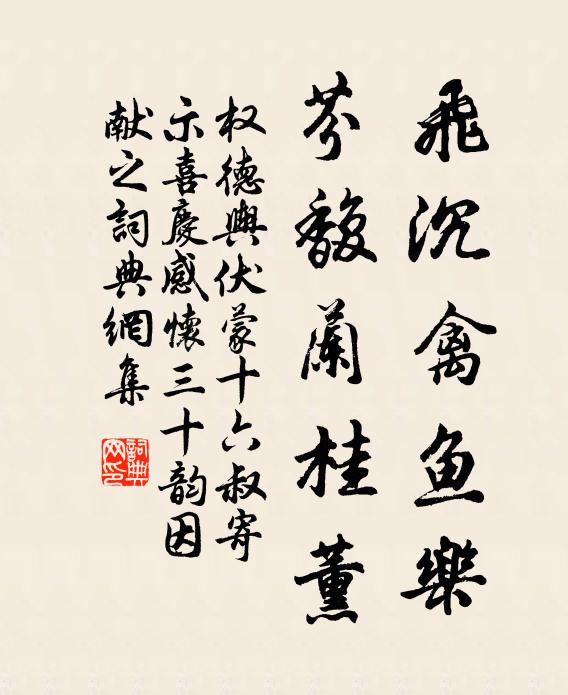 飛沉禽鱼樂
芬馥蘭桂薰
权德輿伏蒙十六叔寄
示喜慶感懷三十韵因
献之詞典網集
詞典网印